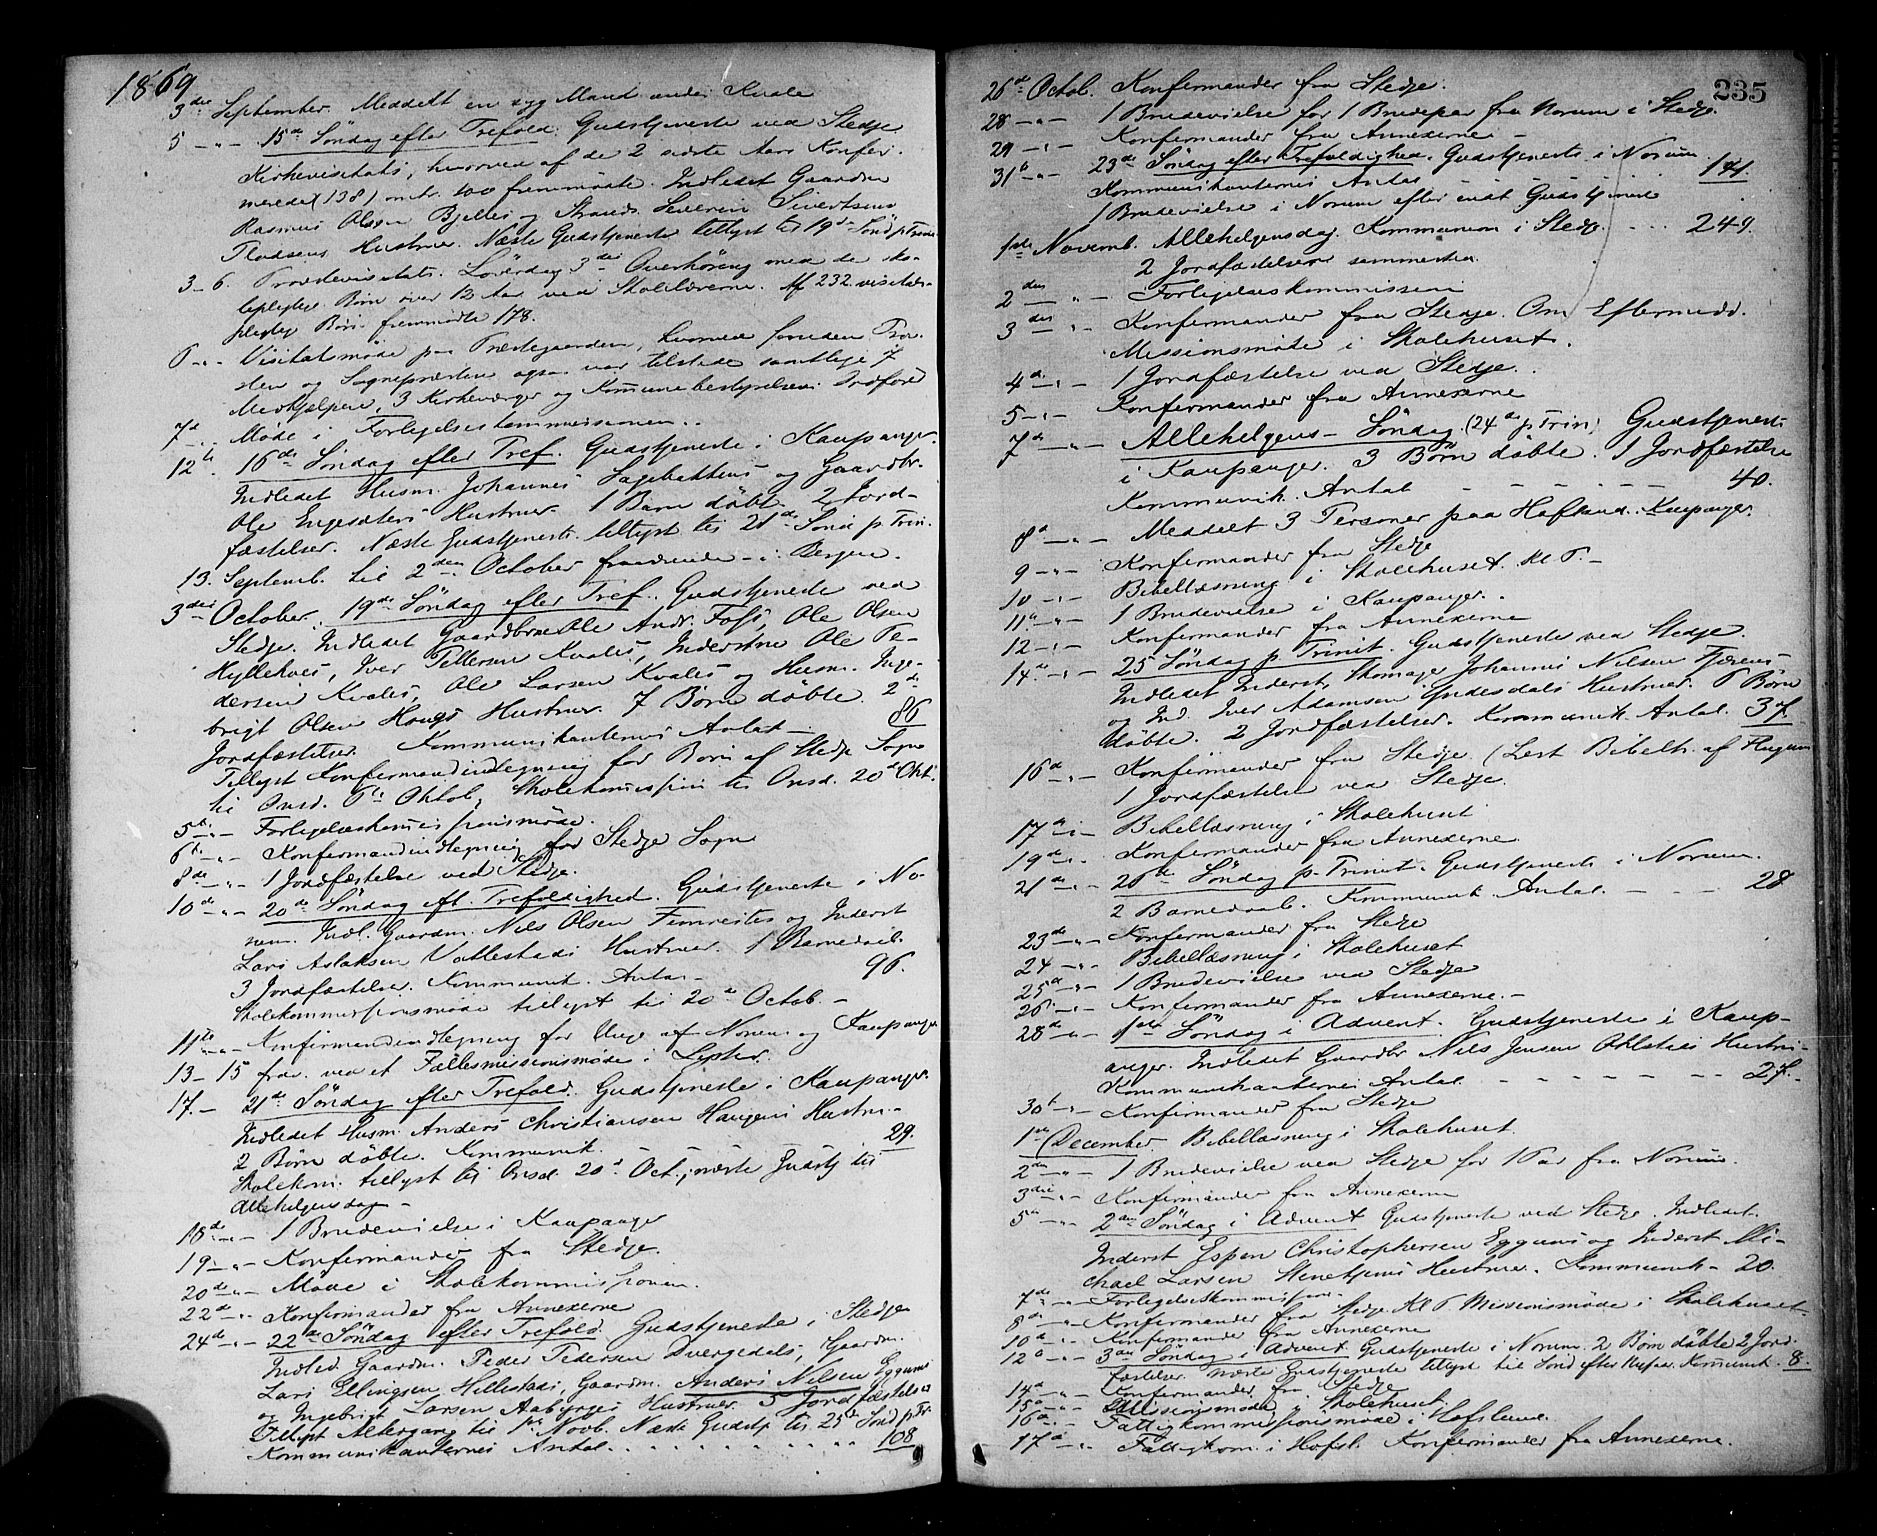 1869
3die September. Meddelt en syg Mand under Kvale
5 -"- 15de Søndag efter Trefold. Gudstjeneste ved Stedje
Kirkevisitats, hvorved af de 2 sidste Aars Konfir-
merede (138) omtr. 100 fremmødte. Indledet Gaardm
Rasmus Olsen Bjelles og Strands. Severin Sivertsens
Hustruer. Næste Gudstjeneste tillyst til 19de Sønd p Trin
3-6. Provstevisitats. Løverdag 3die Overhøring med de sko-
lepligtige Børn over 12 Aar ved Skolelærerne. Af 232 visitats-
pligtige Børn fremmødte 178.
6 -"- Visitatsmøde paa Præstegaarden, hvorved foruden Prov-
sten og Sognepræsten ogsaa var tilstede samtlige 7
Medhjælpere, 3 Kirkeværger og Kommunebestyrelsens Ordfører
7de -"- Møde i Forligelseskommissionen.
12te 16de Søndag efter Tref. Gudstjeneste i Kaupanger.
Indledet Husm. Johannes Sagebakkens og Gaardbr.
Ole Engesæters Hustruer. 1 Barn døbt. 2 Jord-
fæstelser. Næste Gudstjeneste tillyst til 21de Sønd p. Trin.
13. Septemb. til 2den October fraværende i Bergen.
3die October. 19de Søndag efter Tref. Gudstjeneste ved
Stedje. Indledet Gaardbrne Ole Andr. Foss, Ole Olsen
Hyllekves, Iver Pettersen Kvales, Inderstne Ole Pe-
dersen Kvales, Ole Larsen Kvales og Husm. Inge-
brigt Olsen Haugs Hustruer. 7 Børn døbte. 2
Jordfæstelser. Kommunikanternes Antal - 86
Tillyst Konfirmandindtegning for Børn af Stedje Sogn
til Onsd. 6te Oktob, Skolekommission til Onsd. 20de Okt.
5te -"- Forligelseskommissionsmøde.
6te -"- Konfirmandindtegning for Stedje Sogn
8de -"- 1 Jordfæstelse ved Stedje.
10de -"- 20de Søndag eft. Trefoldighed. Gudstjeneste i No-
rum. Indl. Gaardm. Nils Olsen Fimreites og Inderst
Lars Aslaksen Vallestads Hustruer. 1 Barnedaab.
3 Jordfæstelser. Kommunik. Antal - 96.
Skolekommissionsmøde tillyst til 20de Octob. -
11te -"- Konfirmandindtegning for Unge af Norum og Kaupanger
13-15 frav. ved et Fællesmissionsmøde i Lyster.
17.- 21de Søndag efter Trefold. Gudstjeneste i Kaupanger.
Indledet Husm. Anders Christiansen Haugens Hustru.
2 Børn døbte. Kommunik. 29.
Skolekom. tillyst til Onsd. 20de Oct., næste Gudstj til
Allehelgensdag -
18de -"- 1 Brudevielse i Kaupanger
19 -"- Konfirmander fra Stedje.
20de -"- Møde i Skolekommissionen.
22de -"- Konfirmander fra Annexerne
24de -"- 22de Søndag efter Trefold. Gudstjeneste i Stedje
Indled. Gaardm. Peder Pedersen Dvergedals, Gaardm.
Lars Ellingsen Hillestads, Gaardm. Anders Nilsen Eggums
og Ingebrigt Larsen Aabergs Hustruer. 5 Jordfæstelser
Tillyst Altergang til 1ste Novb. Næste Gudstj til 25de Sønd p. Tr
Kommunikanternes Antal . . . . . . . . . 108
235
26de Octob. Konfirmander fra Stedje.
28 -"- 1 Brudevielse for 1 Brudepar fra Norum i Stedje.
29 -"- Konfirmander fra Annexerne -
31te -"- 23de Søndag efter Trefoldighed. Gudstjeneste i Norum
Kommunikanternes Antal 141.
1 Brudevielse i Norum efter endt Gudstjeneste
1ste Novemb. Allehelgensdag. Kommunion i Stedje. . . . 249.
2 Jordfæstelser sammesteds
2den -"- Forligelseskommission
3die -"- Konfirmander fra Stedje. Om Eftermidd.
Missionsmøde i Skolehuset.
4de -"- 1 Jordfæstelse ved Stedje.
5 -"- Konfirmander fra Annexerne
7de -"- Allehelgens-Søndag (24de p Trin) Gudstjeneste
i Kaupanger. 3 Børn døbte. 1 Jordfæstelse
Kommunik. Antal - - - - - - 40.
8de -"- Meddelt 3 Personer paa Hafland. Kaupanger.
9 -"- Konfirmander fra Stedje
10 -"- Bibellæsning i Skolehuset. Kl 6. -
11te -"- 1 Brudevielse i Kaupanger.
12 -"- Konfirmander fra Annexerne
14de -"- 25 Søndag p. Trinit. Gudstjeneste ved Stedje.
Indledet Inderst Skomager Johannes Nilsen
og Ind. Iver Adamsen Gudesdals Hustruer. 6 Børn
døbte. 2 Jordfæstelser. Kommunik. Antal. 37.
16de -"- Konfirmander fra Stedje. (Lest Bibelh. af Flugum
1 Jordfæstelse ved Stedje.
17de -"- Bibellæsning i Skolehuset
19de -"- Konfirmander fra Annexerne
21de -"- 26de Søndag p. Trinit. Gudstjeneste i Norum.
2 Barnedaab. Kommunik. Antal. - - - 28
23de -"- Konfirmander fra Stedje
24 -"- Bibellæsning i Skolehuset
25de -"- 1 Brudevielse ved Stedje
26. -"- Konfirmander fra Annexerne. -
28de -"- 1ste Søndag i Advent. Gudstjeneste i Kaup-
anger. Indledet Gaardbr Nils Jensen Ohlstads Hustru.
Kommunikanternes Antal - - - - - - 27.
30te -"- Konfirmander fra Stedje
1ste December. Bibellæsning i Skolehuset.
2den -"- 1 Brudevielse ved Stedje for 1 Par fra Norum.
3die -"- Konfirmander fra Annexerne
5te -"- 2den Søndag i Advent Gudstjeneste ved Stedje. Indledet
Inderst Espen Christophersen Eggums og Inderst Mi-
chael Larsen Stenehjems Hustruer. Kommunik - 20.
7de -"- Forligelseskommission.
8de -"- Konfirmander fra Stedje Kl 6 Missionsmøde i Skolehuset
10de -"- Konfirmander fra Annexerne
12te -"- 3die Søndag i Advent Gudstjeneste i Norum. 2 Børn døbte 2 Jord-
fæstelser. Næste Gudstjeneste tillyst til Sønd efter Nytaar. Kommunik. 8.
14de -"- Konfirmander fra Stedje
15de -"- Missionsmøde i Skolehuset.
16de -"- Fattigkommissionsmøde i Hofslund.
17de -"- Fattigkom. i Hofsl. Konfirmander fra Annexerne.